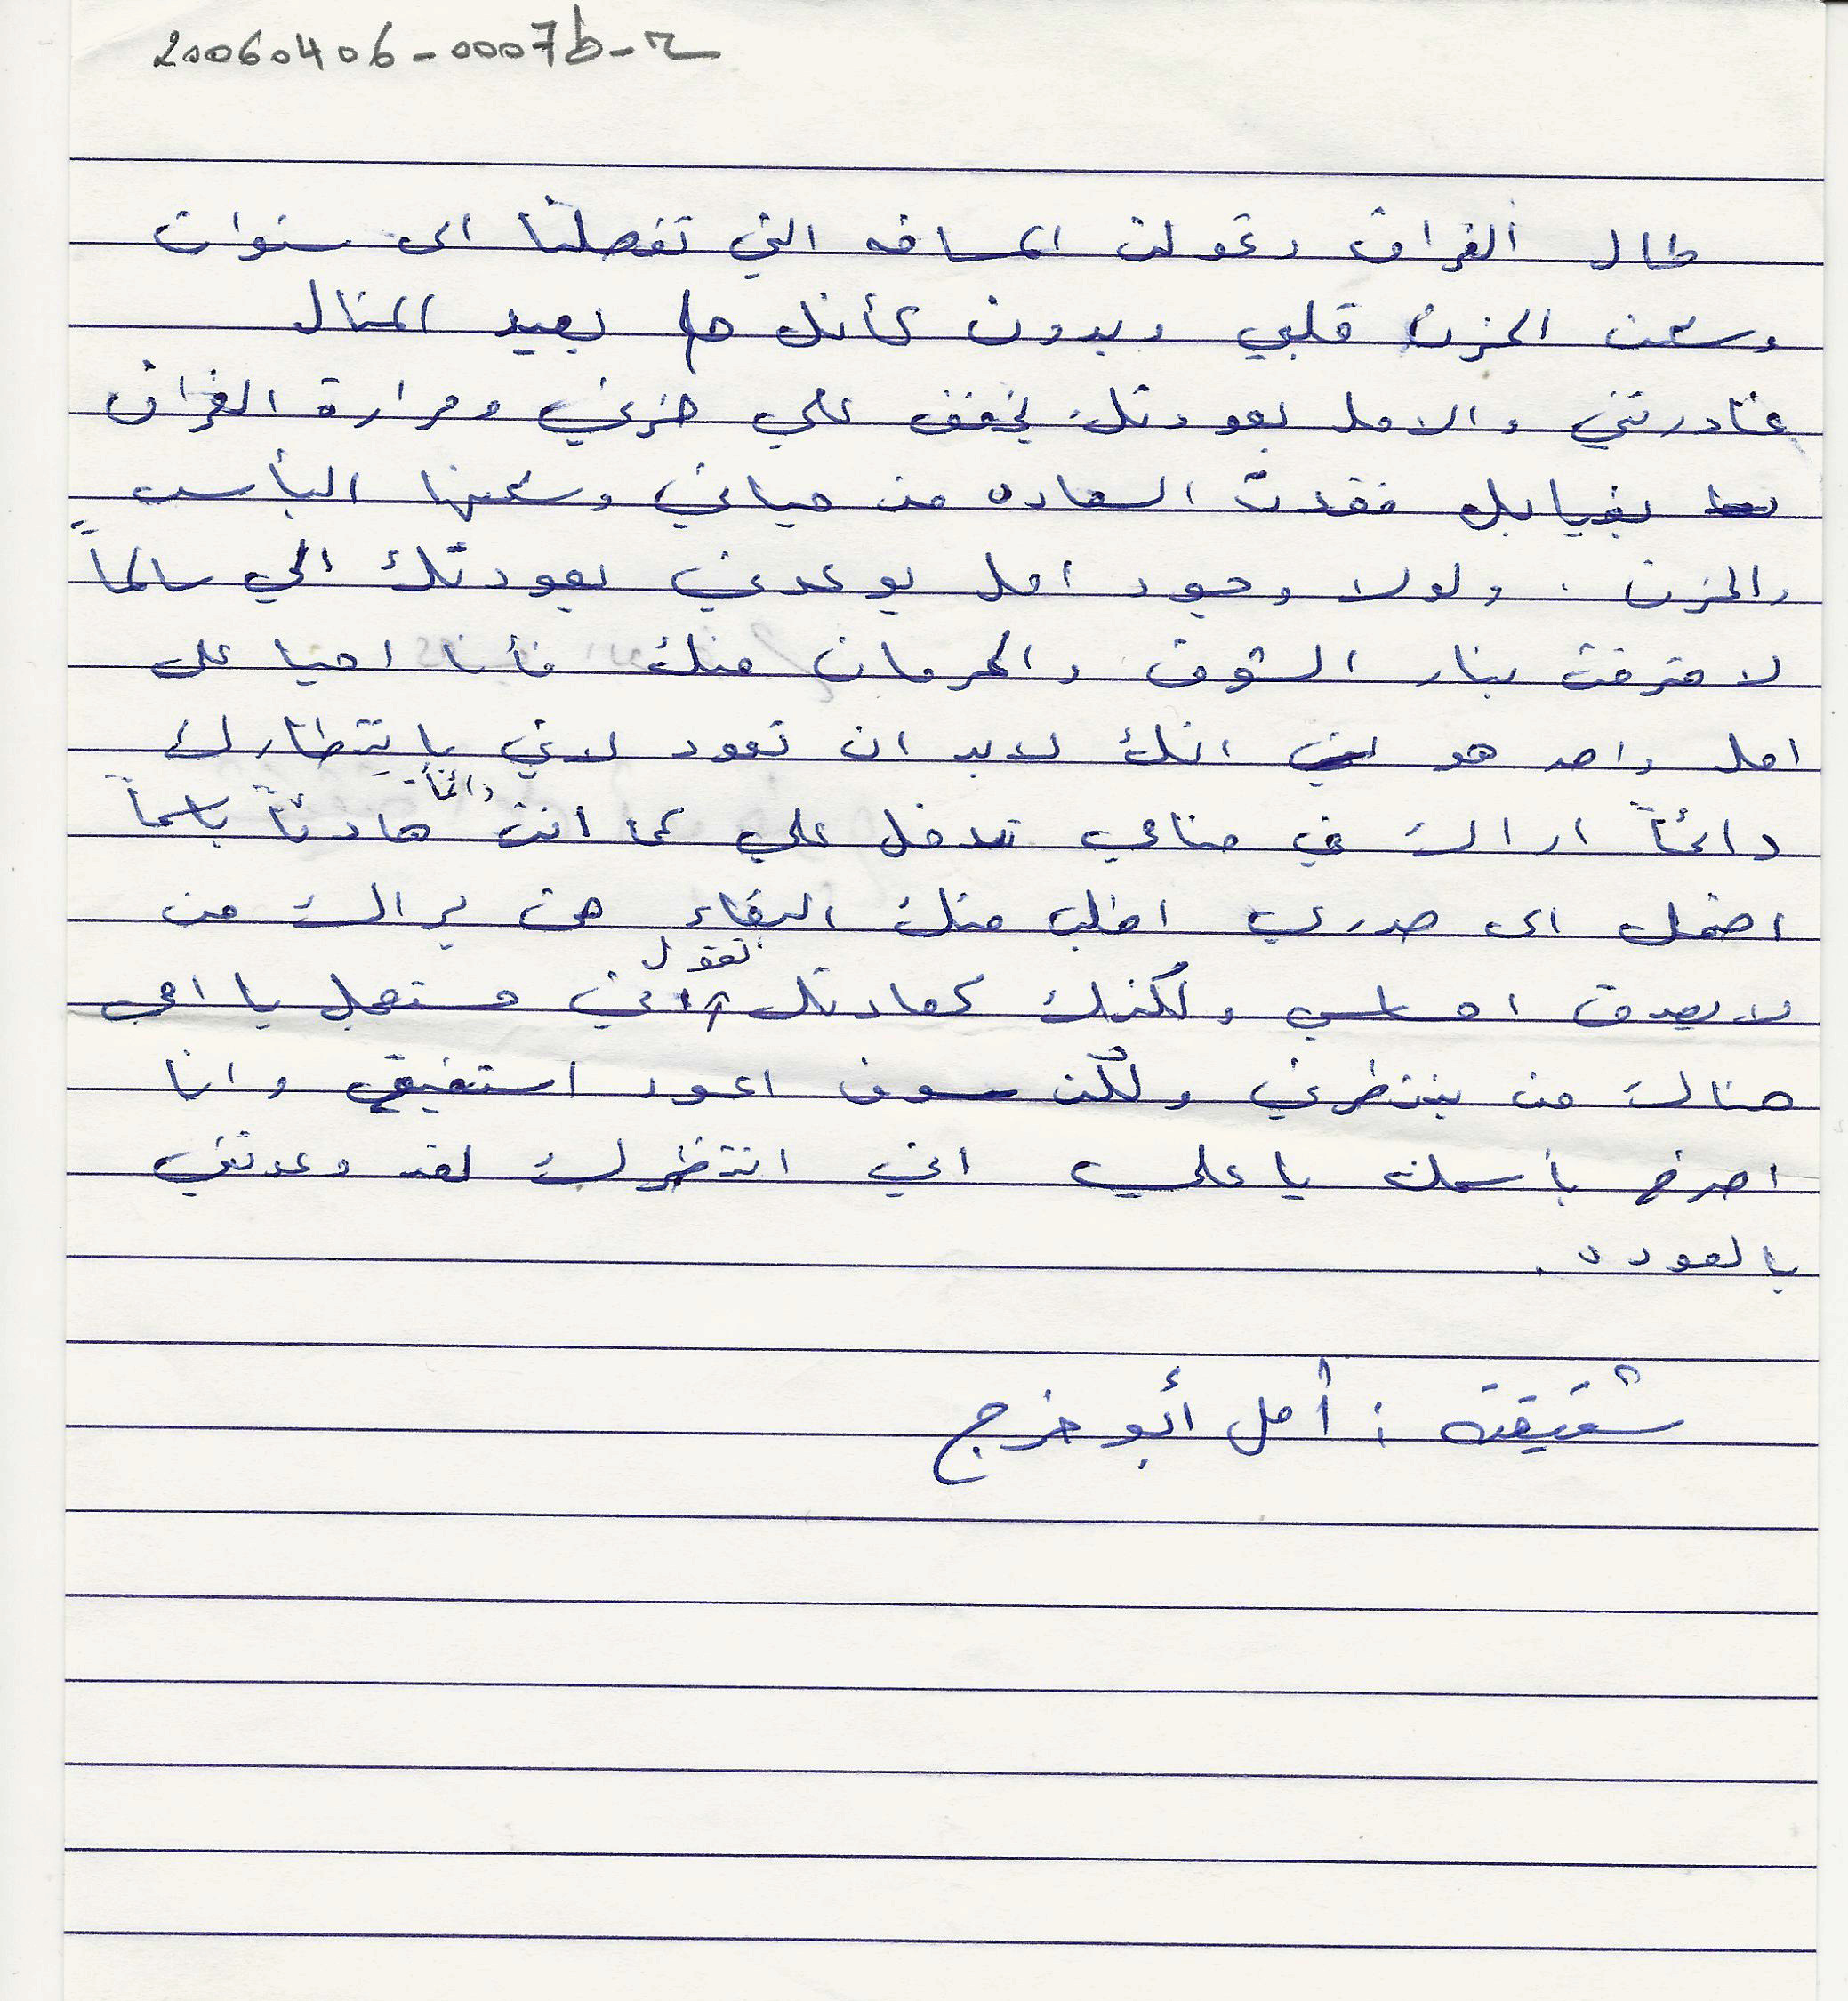 20060406-0007b-r
طال الفراق وتحولت المسافه التي تفصلنا الى سنوات
وسكن الحزن قلبي وبدون كأنك حلم بعيد المنال
غادرتني والامل بعودتك يخفف علي حزني ومرارة الفراق
بغيابك فقدت السعاده من حياتي وسكنها اليأس
والحزن . ولولا وجود امل يوعدني بعودتك الي سالماً
لاحترقت بنار الشوق والحرمان منك فأنا احيا على
امل واحد هو انك لابد ان تعود لاني بإنتظارك
دائماً
دائماً اراك في منامي تدخل علي كما انت هادئاً باسماً
اضمك الى صدري اطلب منك البقاء حتى يراك من
تقول
لا يصدق احساسي ولكنك كعادتك اني مستعجل يا امي
هناك من ينتظرني ولكن سوف اعود استفيق وانا
اصرخ بأسمك يا علي اني انتظرك لقد وعدتني
بالعوده .
شقيقته : أمل أبو خرج